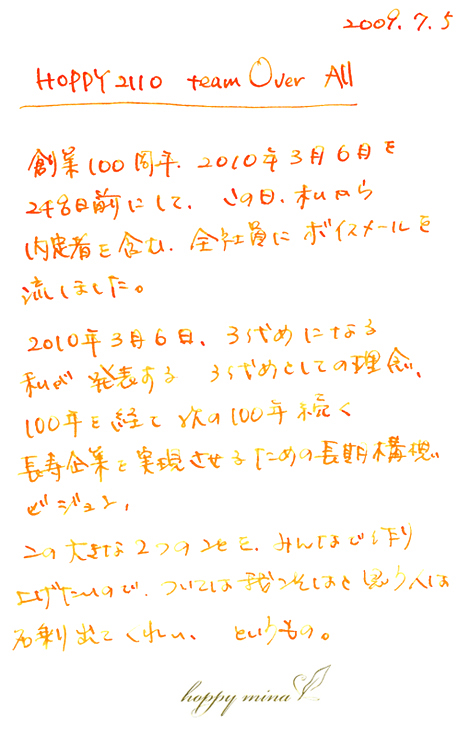 2009.7.5
HOPPY2110 team Over All
創業100周年、2010年3月6日を
248日前にして、この日、私から
内定者を含む、全社員にボイスメールを
流しました。
2010年3月6日、3代めになる
私が発表する 3代めとしての理念、
100年を経て次の100年続く
長寿企業を実現させるための長期構想
ビジョン、
この大きな2つのことを、みんなで作り
上げたいので、ついては我こそはと思う人は
名乗り出てくれい、というもの。
hoppy mina